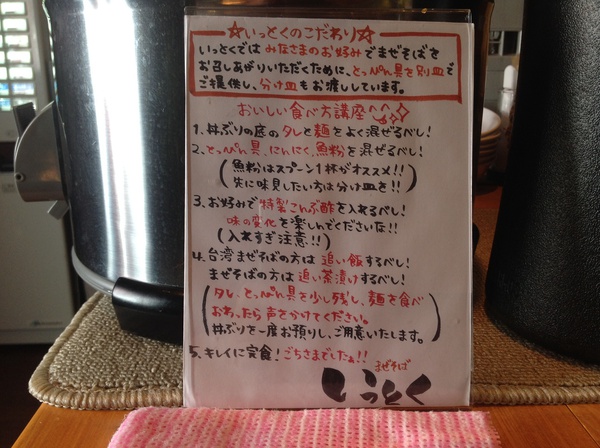 ☆いっとくのこだわり☆
いっとくでは みなさまのお好みでまぜそばを
お召しあがりいただくために、とっぺん具を別皿で
ご提供し、分け皿もお渡ししています。
おいしい食べ方講座^^
1. 丼ぶりの底のタレと麺をよく混ぜるべし!
2. とっぺん具、にんにく、魚粉を混ぜるべし!
(魚粉はスプーン1杯がオススメ!!
先に味見したい方は分け皿を!!)
3. お好みで特製こんぶ酢を入れるべし!
味の変化を楽しんでくださいな!!
(入れすぎ注意!!)
4. 台湾まぜそばの方は 追い飯するべし!
まぜそばの方は 追い茶漬けするべし!
(タレ、とっぺん具を少し残し、麺を食べ
おわったら声をかけてください。
丼ぶりを一度お預りし、ご用意いたします。)
5. キレイに完食! ごちさまでしたぁ!!
まぜそば
いっとく